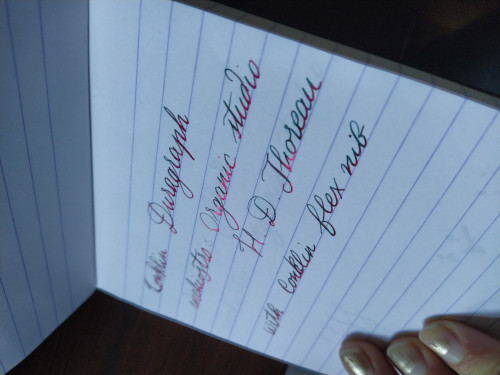 Conklin Duragraph
Organic studio
H. D. Thoreau
with Conklin flex nib